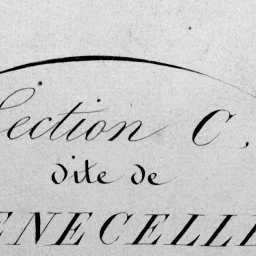 Section C,
dite de
ENECELLE